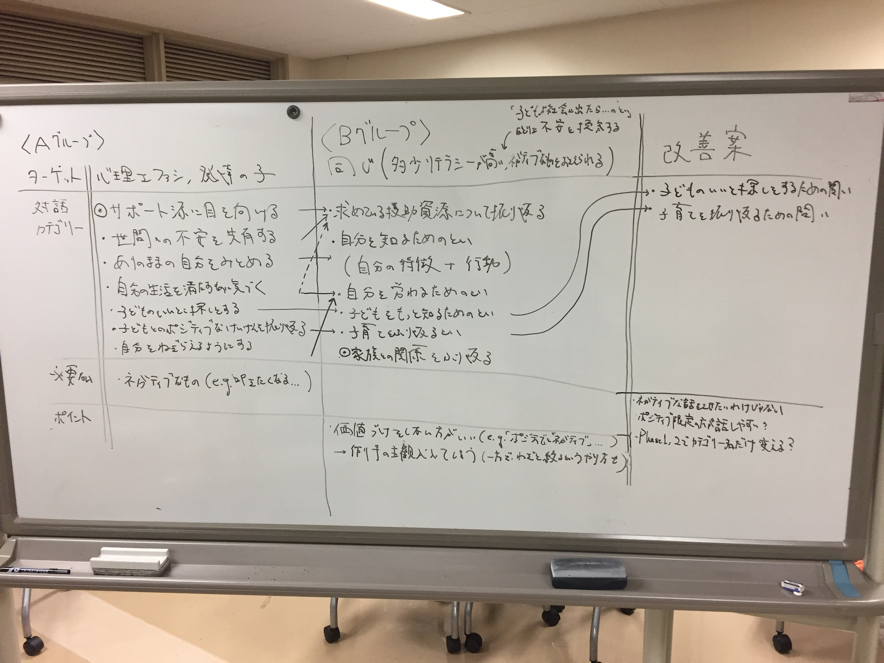 〈Aグループ〉
ターゲット 心理士アラシ, 発達の子
対話カテゴリー
◎サポート源に目を向ける
・世間への不安を共有する
・ありのままの自分をみとめる
・自分の生活を満たすものに気づく
・子どものいいとこ探しをする
・子どもとのポジティブなけいけんを振り返る
・自分をねぎらえるようにする
必要ない
・ネガティブなもの(e.g. 叩きたくなる…)
ポイント
〈Bグループ〉
「子どもが社会に出たら…」のとい
は不安を喚起する
同じ(多少リテラシーが高い,
・求めている援助資源について振り返る
・自分を知るためのとい
(自分の特徴 + 行動)
・自分を労わるためのとい
・子どもをもっと知るためのとい
・子育てをふり返るとい
◎家族との関係をふり返る
・価値づけをしない方がいい(e.g.「ポジティブ」「ネガティブ」…)
→ 作り手の主観入ってしまう(一方で、わざと絞るというやり方も)
改善案
・子どものいいとこ探しをするための問い
・子育てを振り返るための問い
・ネガティブな話をさせたいわけじゃない
ポジティブ限定の方が話しやすい?
・Phase1, 2でカテゴリー名だけ変える?